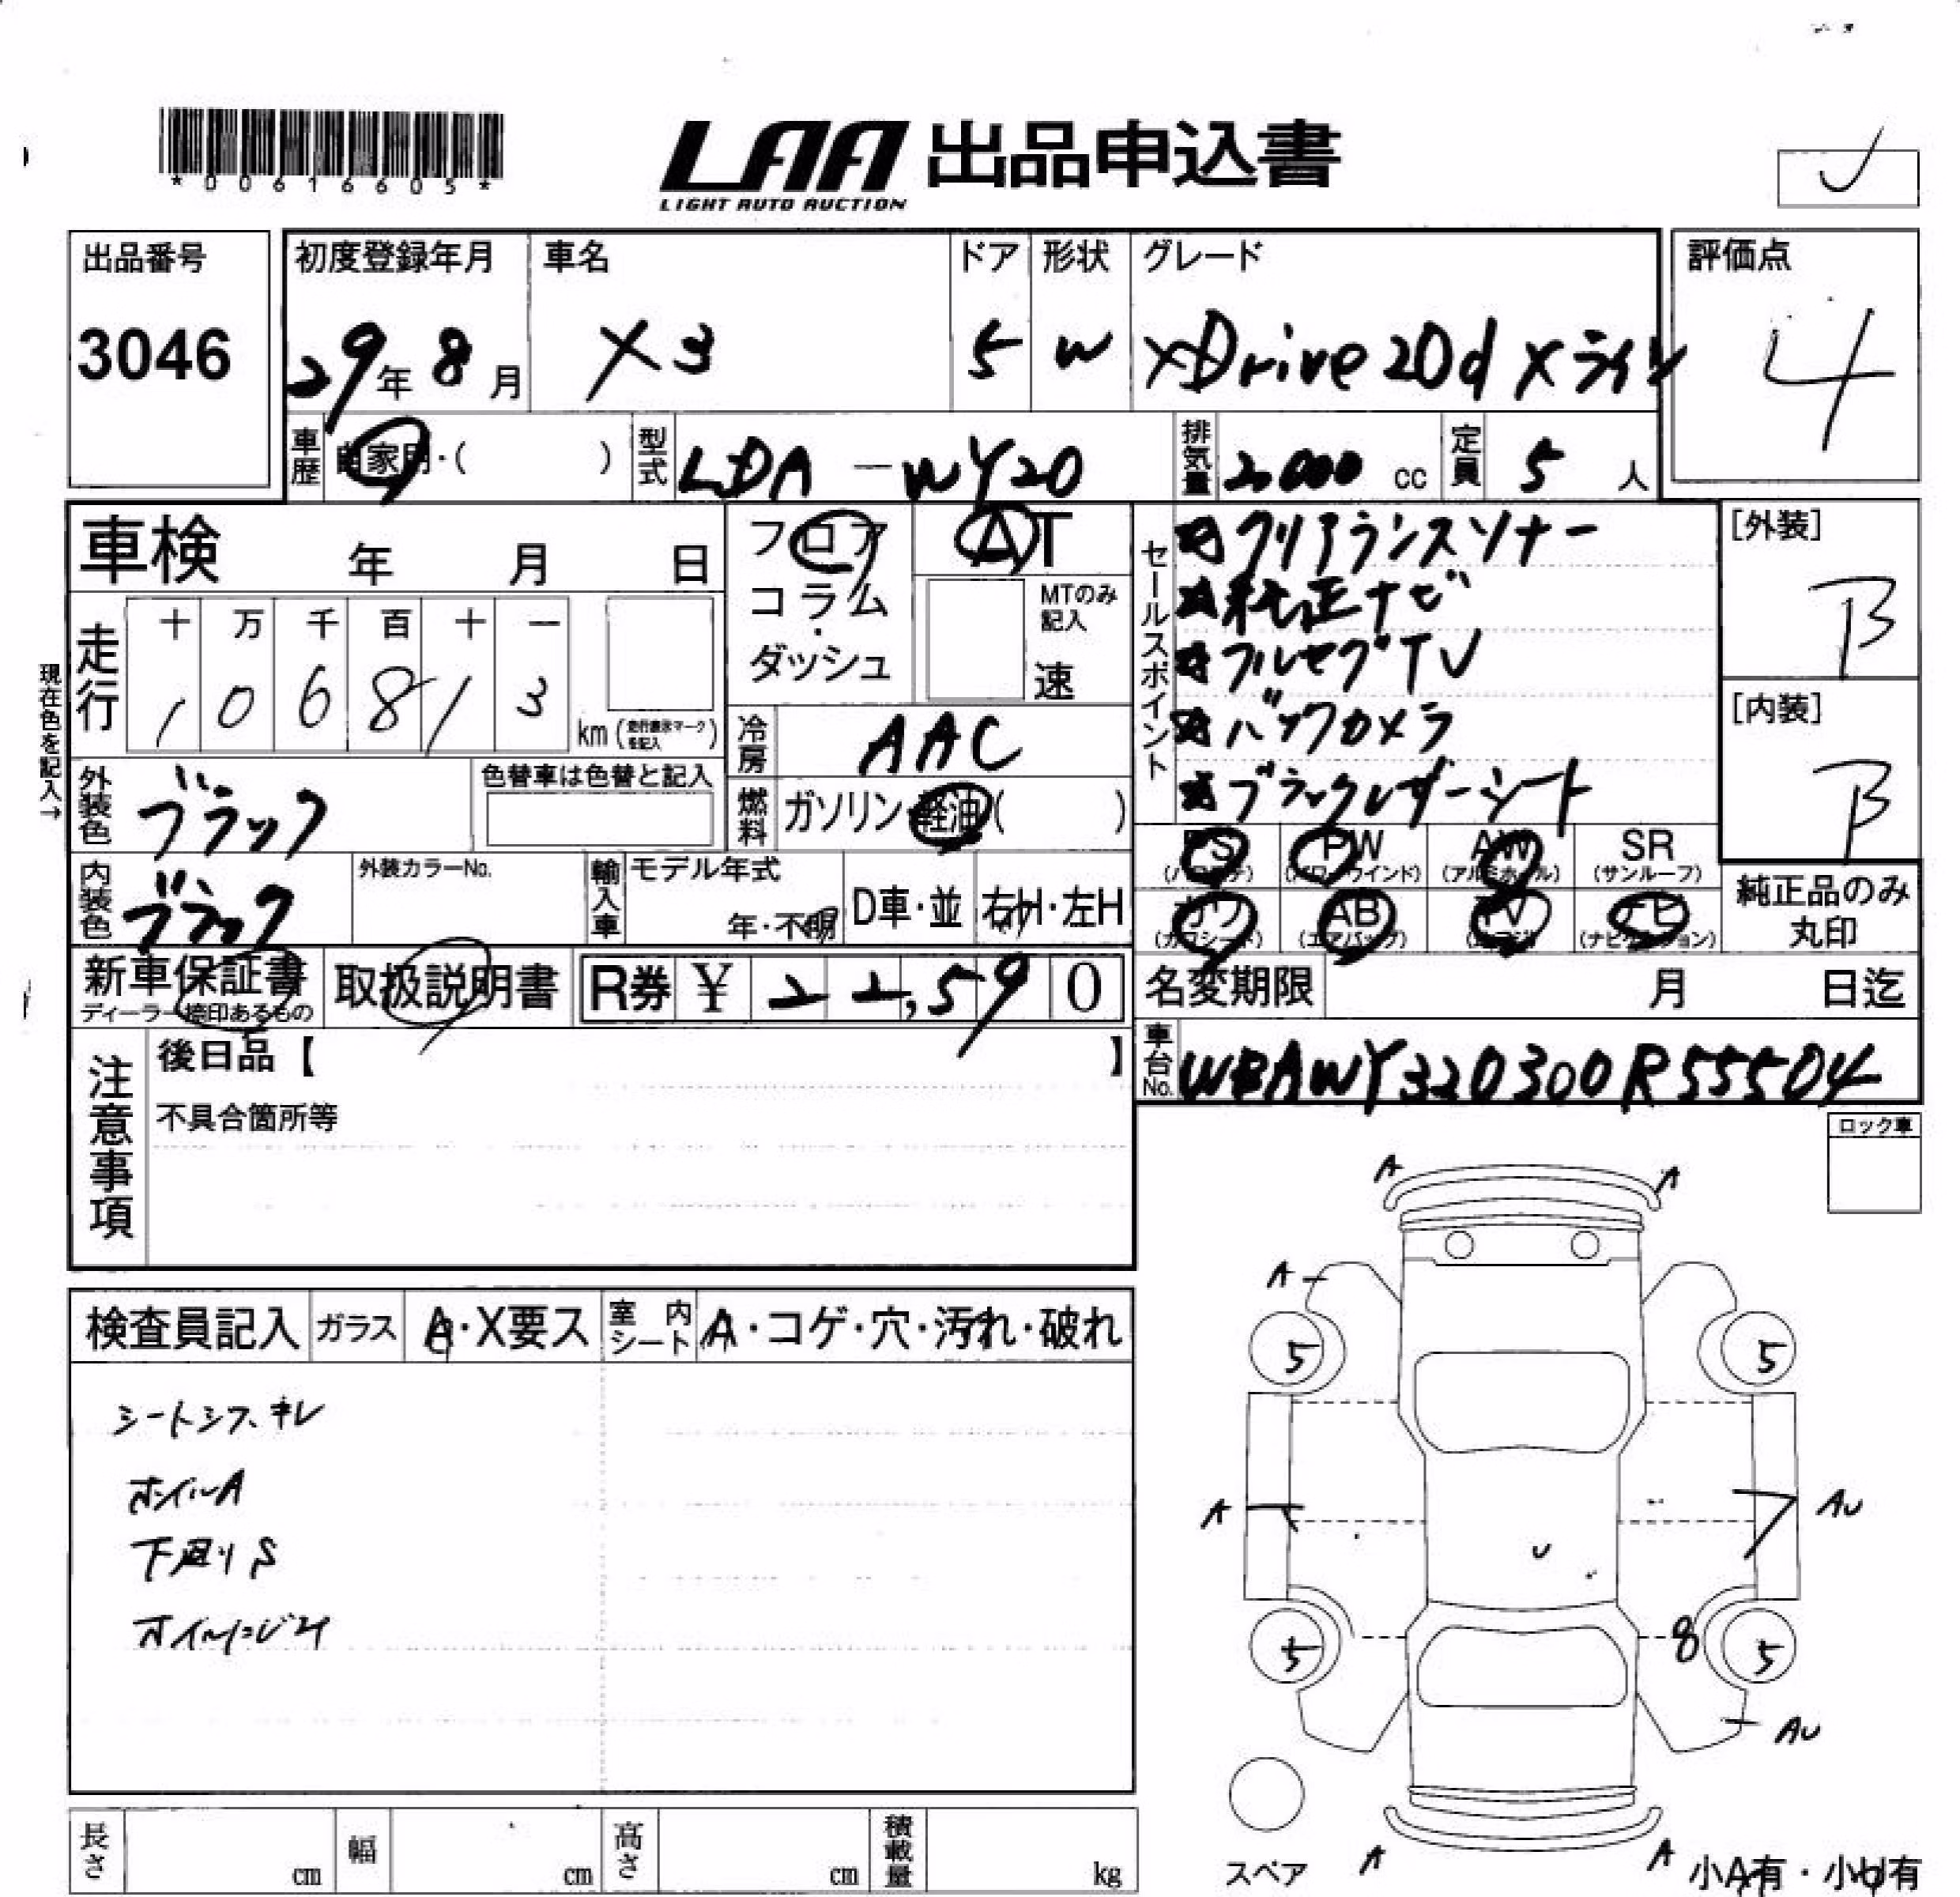 *00616605*
LAA 出品申込書
LIGHT AUTO AUCTION
出品番号
3046
初度登録年月
29年 8月
車名
X3
ドア
5
形状
W
グレード
xDrive20d Xライン
評価点
4
車歴 自家用・( )
型式 LDA-WY20
排気量 2000 cc
定員 5 人
車検 年 月 日
フロア
コラム
・
ダッシュ
AT
MTのみ
記入
速
セールスポイント
★クリアランスソナー
★純正ナビ
★フルセグTV
★バックカメラ
★ブラックレザーシート
[外装]
B
[内装]
B
現在色を記入→
走行
十 万 千 百 十 一
1 0 6 8 1 3
km (走行表示マークを記入)
冷房 AAC
外装色 ブラック
色替車は色替と記入
燃料 ガソリン・軽油( )
PS PW AW SR
(パワステ) (パワーウインド) (アルミホイール) (サンルーフ)
カワ AB TV ナビ
(カワシート) (エアバッグ) (ナビゲーション)
純正品のみ
丸印
内装色 ブラック
外装カラーNo.
輸入車
モデル年式
年・不明
D車・並
右H・左H
新車保証書
ディーラー捺印あるもの
取扱説明書
R券 ¥ 22,590
名変期限 月 日迄
車台No. WBAWY320300R55504
注意事項
後日品【 】
不具合箇所等
ロック車
検査員記入
ガラス A・X要ス
室内シート A・コゲ・穴・汚れ・破れ
シートシワ、キレ
ホイールA
下廻りS
オイルにじみ
A A
A
5 5
A AU
U
5 8 5
AU
スペア
A A
小A有・小U有
長さ cm
幅 cm
高さ cm
積載量 kg